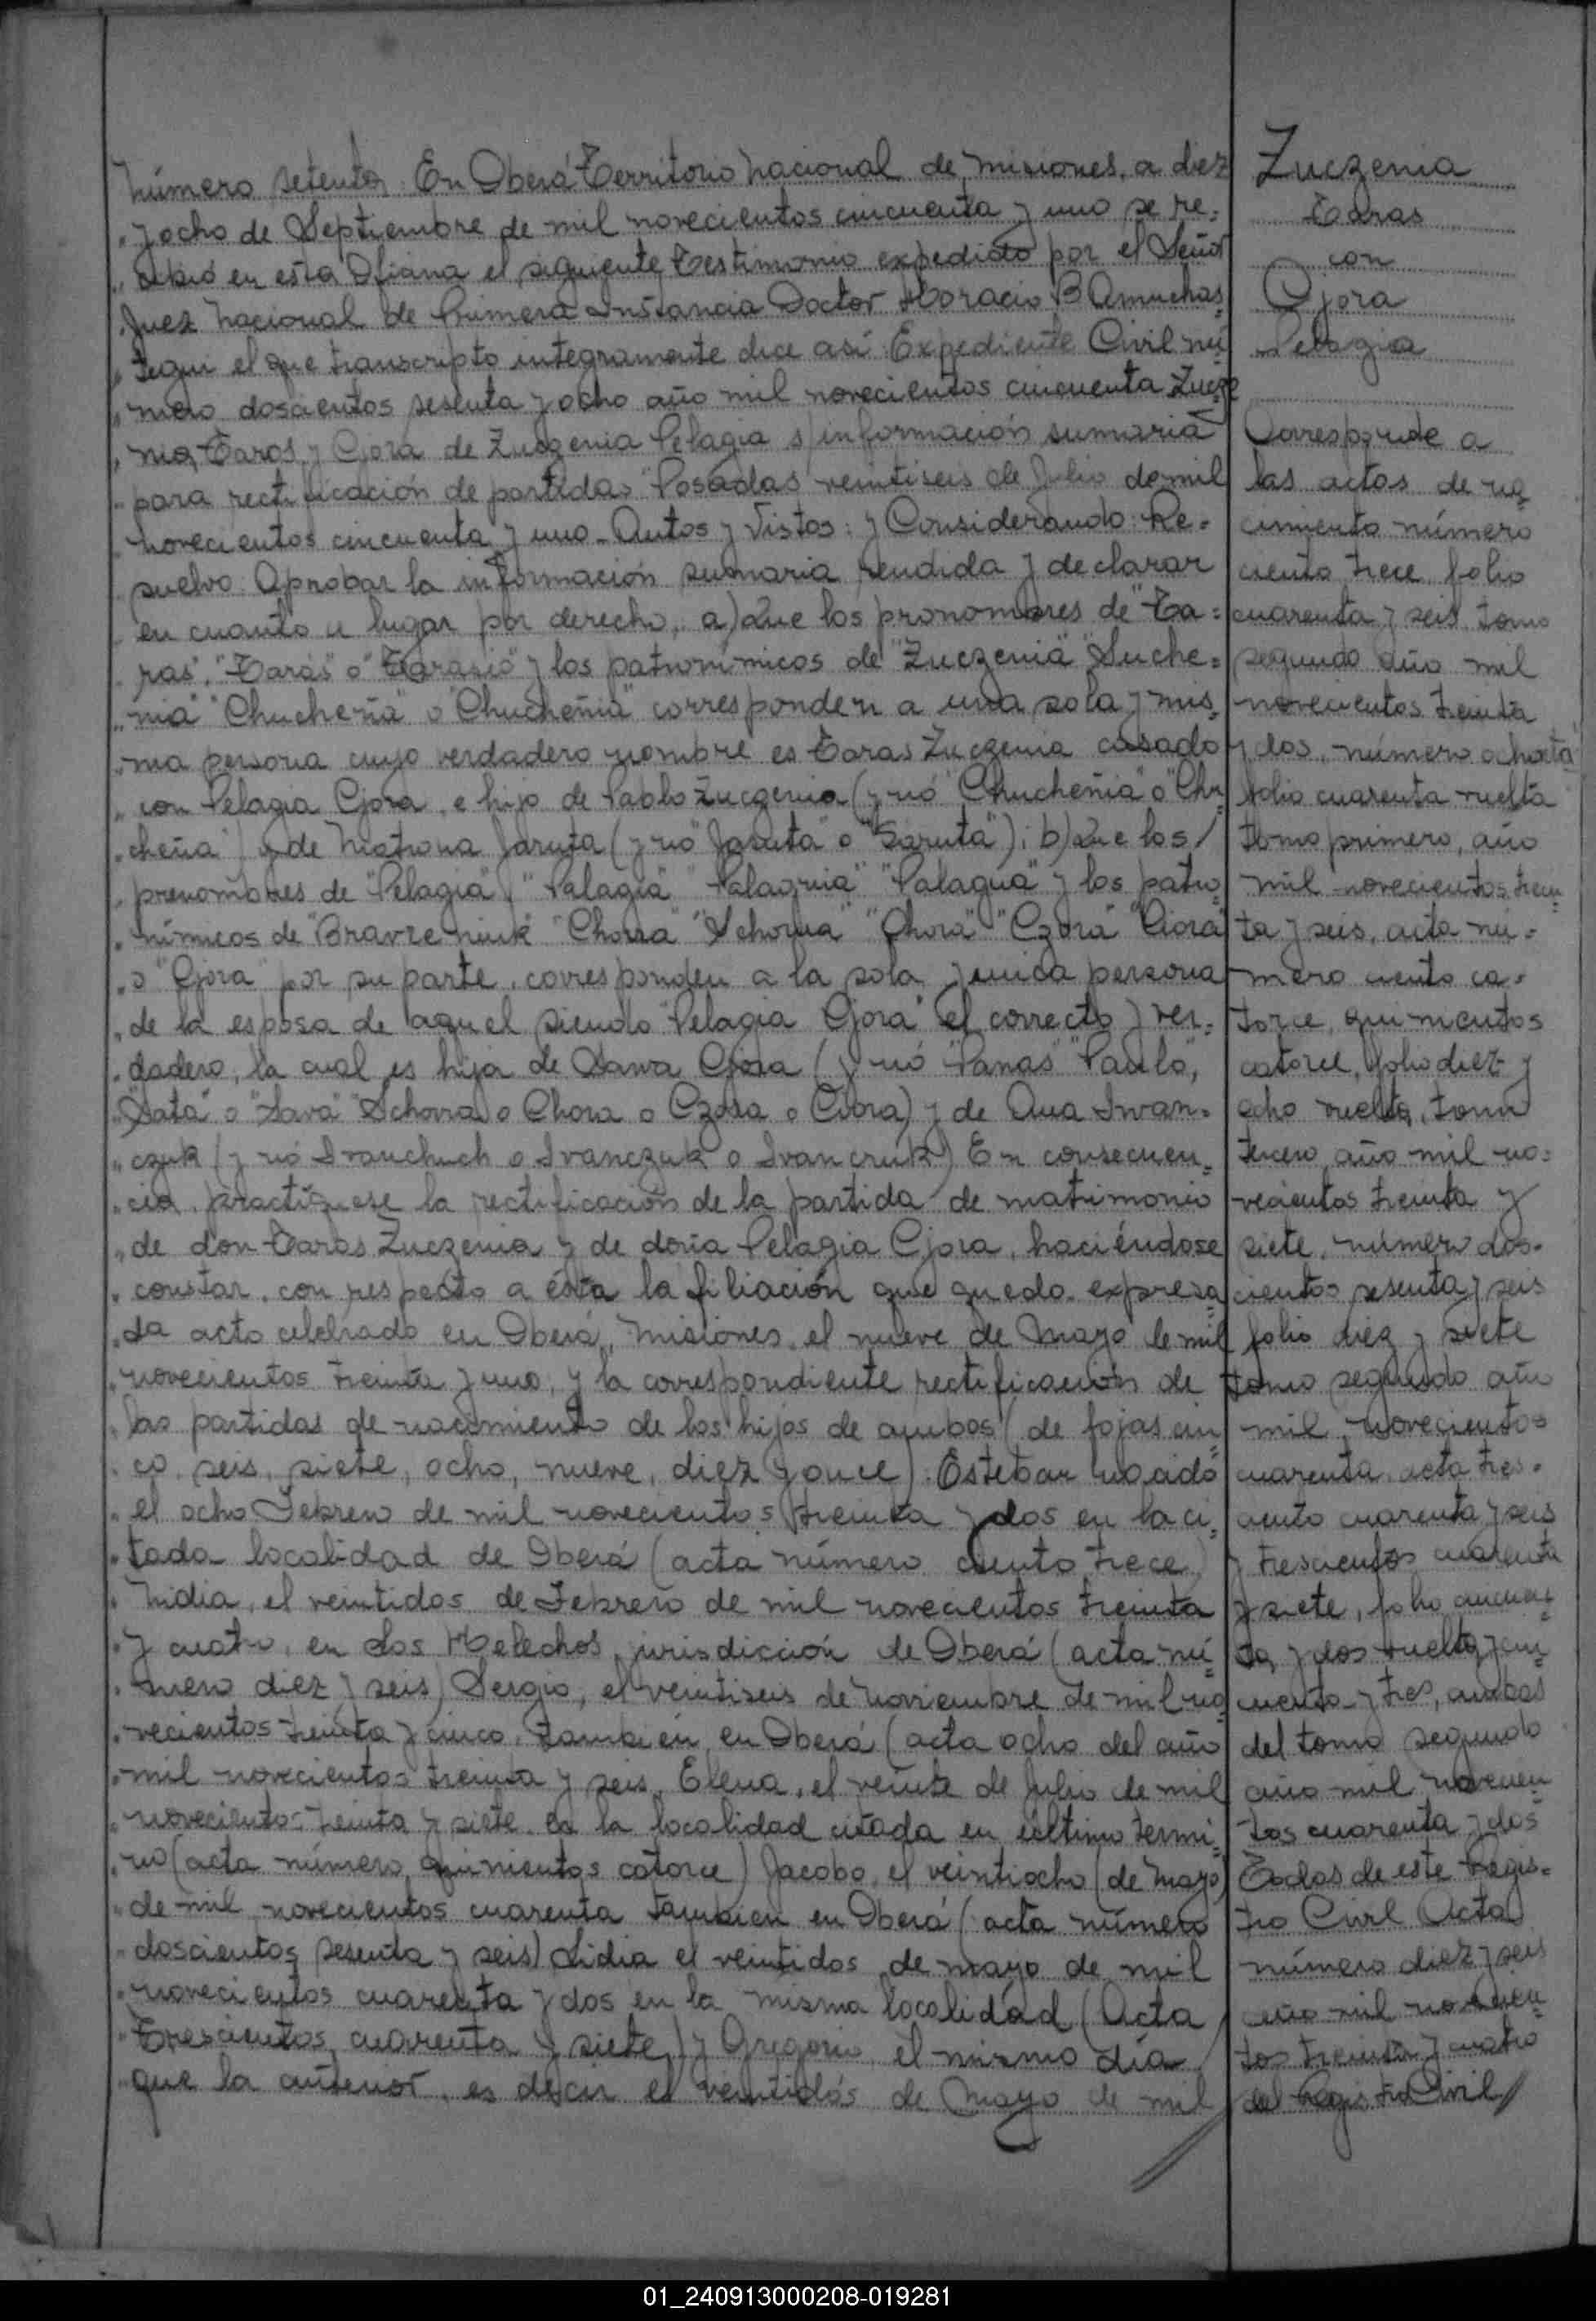 Número setenta: En Oberá Territorio Nacional de Misiones, a diez
y ocho de Septiembre de mil novecientos cincuenta y uno se re=
cibió en esta Oficina el siguiente testimonio expedido por el Señor
Juez Nacional de Primera Instancia Doctor Horacio B Amuchas=
tegui el que transcripto integramente dice así: Expediente Civil nú=
mero doscientos sesenta y ocho año mil novecientos cincuenta Zucze
nia, Taras y Cjora de Zuczenia Pelagia s/información sumaria
para rectificación de partidas "Posadas veintiseis de Julio de mil
novecientos cincuenta y uno - Autos y Vistos: y Considerando: Re=
suelvo: Aprobar la información sumaria rendida y declarar
en cuanto u lugar por derecho, a) Que los pronombres de "Ta=
ras", "Tarás" o "Tarasio" y los patronímicos de "Zuczenia" "Suche=
nia" "Chucheña" o "Chucheñia" corresponden a una sola y mis=
ma persona cuyo verdadero nombre es Taras Zuczenia casado
con Pelagia Cjora, e hijo de Pablo Zuczenia (y nó "Chucheñia" o "Chu
cheña") y de Matrona Jaruta (y nó "Jasuta" o "Saruta"); b) Que los
prenombres de "Pelagia", "Palagia" "Palagnia" "Palagua" y los patro=
nímicos de "Chorra" "Schorua" "Chora" "Czora" "Ciora"
o "Cjora" por su parte, corresponden a la sola y unica persona
de la esposa de aquel siendo "Pelagia Cjora" el correcto y ver=
dadero, la cual es hija de Sawa Cjora (y nó "Panas" "Paulo",
"Sata" o "Sava" "Schorra o Chora o Czora o Ciora) y de Ana Iwan=
czuk (y nó Ivanchuch o Ivanczuk o Ivancruk) En consecuen=
cia, practíquese la rectificación de la partida de matrimonio
de don Taras Zuczenia y de doña Pelagia Cjora, haciéndose
constar, con respecto a ésta la filiación que queda expresa=
da acto celebrado en Oberá, Misiones, el nueve de Mayo de mil
novecientos treinta y uno; y la correspondiente rectificación de
las partidas de nacimiento de los hijos de ambos (de fojas cin=
co, seis, siete, ocho, nueve, diez y once): Esteban nacido
el ocho Febrero de mil novecientos treinta y dos en la ci=
tada localidad de Oberá (acta número ciento trece)
Nidia, el veintidos de Febrero de mil novecientos treinta
y cuatro, en Los Helechos, jurisdicción de Oberá (acta nú=
mero diez y seis) Sergio, el veintiseis de noviembre de mil no=
vecientos treinta y cinco, también en Oberá (acta ocho del año
mil novecientos treinta y seis, Elena, el veinte de Julio de mil
novecientos treinta y siete en la localidad citada en último termi=
no (acta número quinientos catorce) Jacobo, el veintiocho (de mayo)
de mil novecientos cuarenta tambien en Oberá (acta número
doscientos sesenta y seis) Lidia el veintidos de mayo de mil
novecientos cuarenta y dos en la misma localidad (Acta
trescientos cuarenta y siete) y Gregorio, el mismo día
que la anterior, es decir el veintidós de Mayo de mil
Zuczenia
Taras
con
Cjora
Pelagia
Corresponde a
las actas de na=
cimiento número
ciento trece folio
cuarenta y seis tomo
segundo año mil
novecientos treinta
y dos, número ochenta
folio cuarenta vuelta
tomo primero, año
mil novecientos trein=
ta y seis, acta nú=
mero ciento ca=
torce, quinientos
catorce, folio diez y
ocho vuelta, tomo
tercero año mil no=
vecientos treinta y
siete, número dos=
cientos sesenta y seis
folio diez y siete
tomo segundo año
mil novecientos
cuarenta, acta tres=
ciento cuarenta y seis
y trescientos cuarenta
y siete, folio cincuen=
ta y dos vuelta y cin=
cuenta y tres, ambas
del tomo segundo
año mil novecien=
tos cuarenta y dos
Todos de este Regis=
tro Civil Acta
número diez y seis
año mil novecien=
tos treinta y cuatro
del Registro Civil
01_240913000208-019281